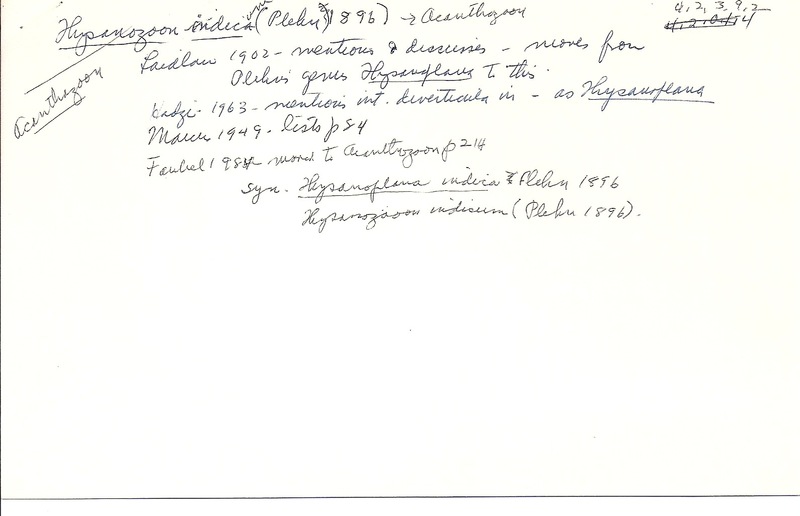 4, 2, 3, 9, 2
4, 2, 0, 1, 4
Thysanozoon indica um (Plehn, 1896) → Acanthozoon
Acanthozoon
Laidlaw 1902 - mentions & discusses - moves from
Plehn's genus Thysanoplana to this.
Hadzi - 1963 - mentions int. diverticula in - as Thysanoplana
Marcus 1949 - lists p 84
Faubel 1984 - moved to Acanthozoon p 214
syn. Thysanoplana indica Plehn 1896
Thysanozoon indicum (Plehn 1896).